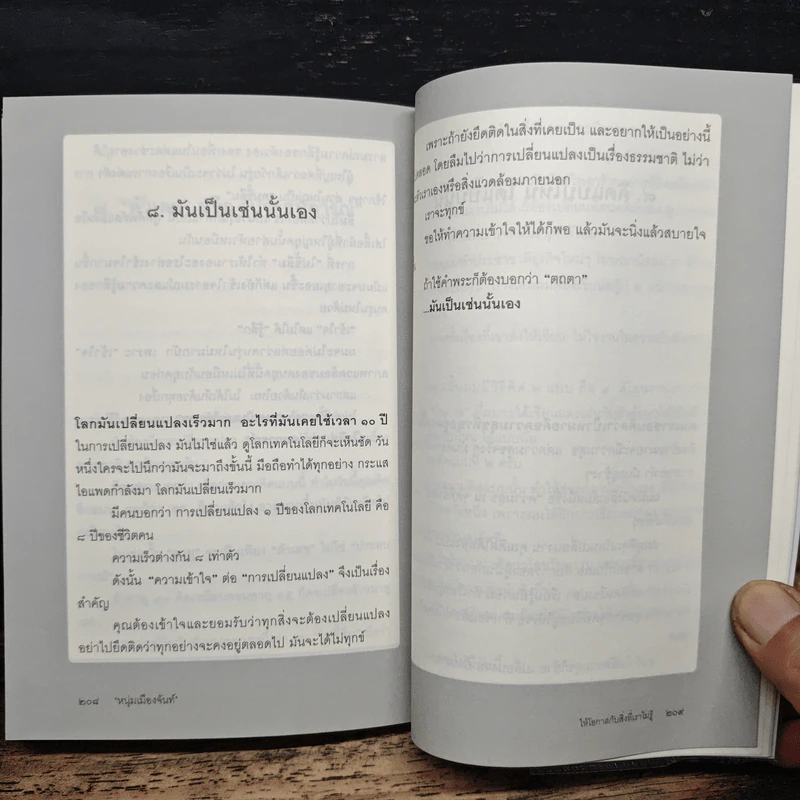 ๘. มันเป็นเช่นนั้นเอง
โลกมันเปลี่ยนแปลงเร็วมาก อะไรที่มันเคยใช้เวลา ๑๐ ปี
ในการเปลี่ยนแปลง มันไม่ใช่แล้ว ดูโลกเทคโนโลยีก็จะเห็นชัด วัน
หนึ่งใครจะไปนึกว่ามันจะมาถึงขั้นนี้ มือถือทำได้ทุกอย่าง กระแส
ไอแพดกำลังมา โลกมันเปลี่ยนเร็วมาก
มีคนบอกว่า การเปลี่ยนแปลง ๑ ปีของโลกเทคโนโลยี คือ
๘ ปีของชีวิตคน
ความเร็วต่างกัน ๘ เท่าตัว
ดังนั้น "ความเข้าใจ" ต่อ "การเปลี่ยนแปลง" จึงเป็นเรื่อง
สำคัญ
คุณต้องเข้าใจและยอมรับว่าทุกสิ่งจะต้องเปลี่ยนแปลง
อย่าไปยึดติดว่าทุกอย่างจะคงอยู่ตลอดไป มันจะได้ไม่ทุกข์
๒๐๘ "หนุ่มเมืองจันท์"
เพราะถ้ายังยึดติดในสิ่งที่เคยเป็น และอยากให้เป็นอย่างนี้
ตลอด โดยลืมไปว่าการเปลี่ยนแปลงเป็นเรื่องธรรมชาติ ไม่ว่า
ตัวเราเองหรือสิ่งแวดล้อมภายนอก
เราจะทุกข์
ขอให้ทำความเข้าใจให้ได้ก็พอ แล้วมันจะนิ่งแล้วสบายใจ
ถ้าใช้คำพระก็ต้องบอกว่า "ตถตา"
...มันเป็นเช่นนั้นเอง
ให้โอกาสกับสิ่งที่เราไม่รู้ ๒๐๙